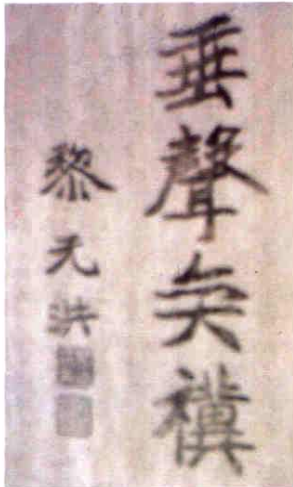 垂聲奕禩
黎元洪